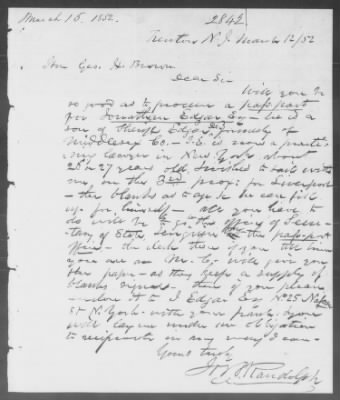 March 15. 1852.
2842
Trenton N. J. March 12/52
Mr Geo. H Brown
Dear Sir
Will you be
so good as to procure a passport
for Jonathan Edgar Esq - he is a
son of Edgar formerly of
Middlesex Co. - J. E. is now a practi-
cing lawyer in New York about
26 or 27 years old & wishes to sail with
me on the 3rd prox: for Liverpool
- the blanks as to age &c he can fill
up for himself - All you have to
do will be to go to the office of Secre-
tary of State & enquire for the passport
office - the clerk there if you tell him
you are an M. C. will give you
the paper - as they keep a supply of
blanks signed - then if you please
enclose it to J Edgar Esq No 25 Nassau
St N. York - with your frank & you
will lay me under an obligation
to reciprocate in any way I can -
Yours truly
Randolph